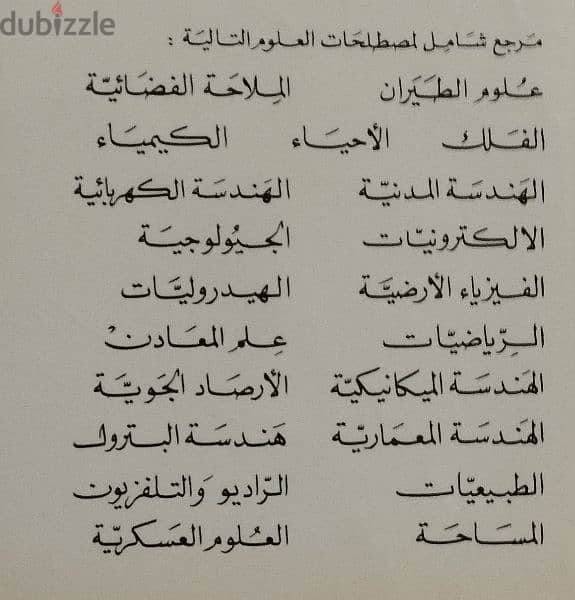 dubizzle
مَرجع شامِل لمصطلحات العلوم التالية :
عُلوم الطيَران المِلاحَة الفضائيّة
الفَلك الأحيَاء الكيميَاء
الهَندسَة المدنيّة الهَندسَة الكهربائية
الالكترونيّات الجيُولوجيَة
الفيزياء الأرضيَّة الهيدروليَّات
الرِّياضيّات عِلم المعَادنْ
الهَندسَة الميكانيكيّة الأرصَاد الجَويَّة
الهَندسَة المعمَاريّة هَندسَة البترول
الطبيعيّات الرّاديو وَالتلفزيون
المسَاحَة العُلوم العَسكريّة